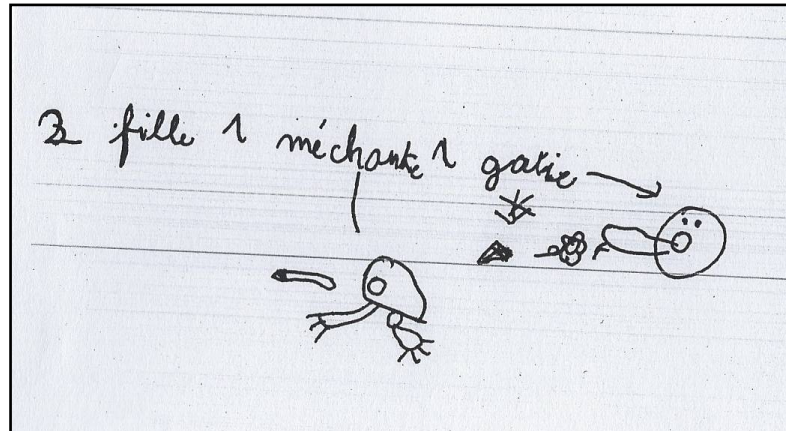 2 fille 1 méchante 1 gatie